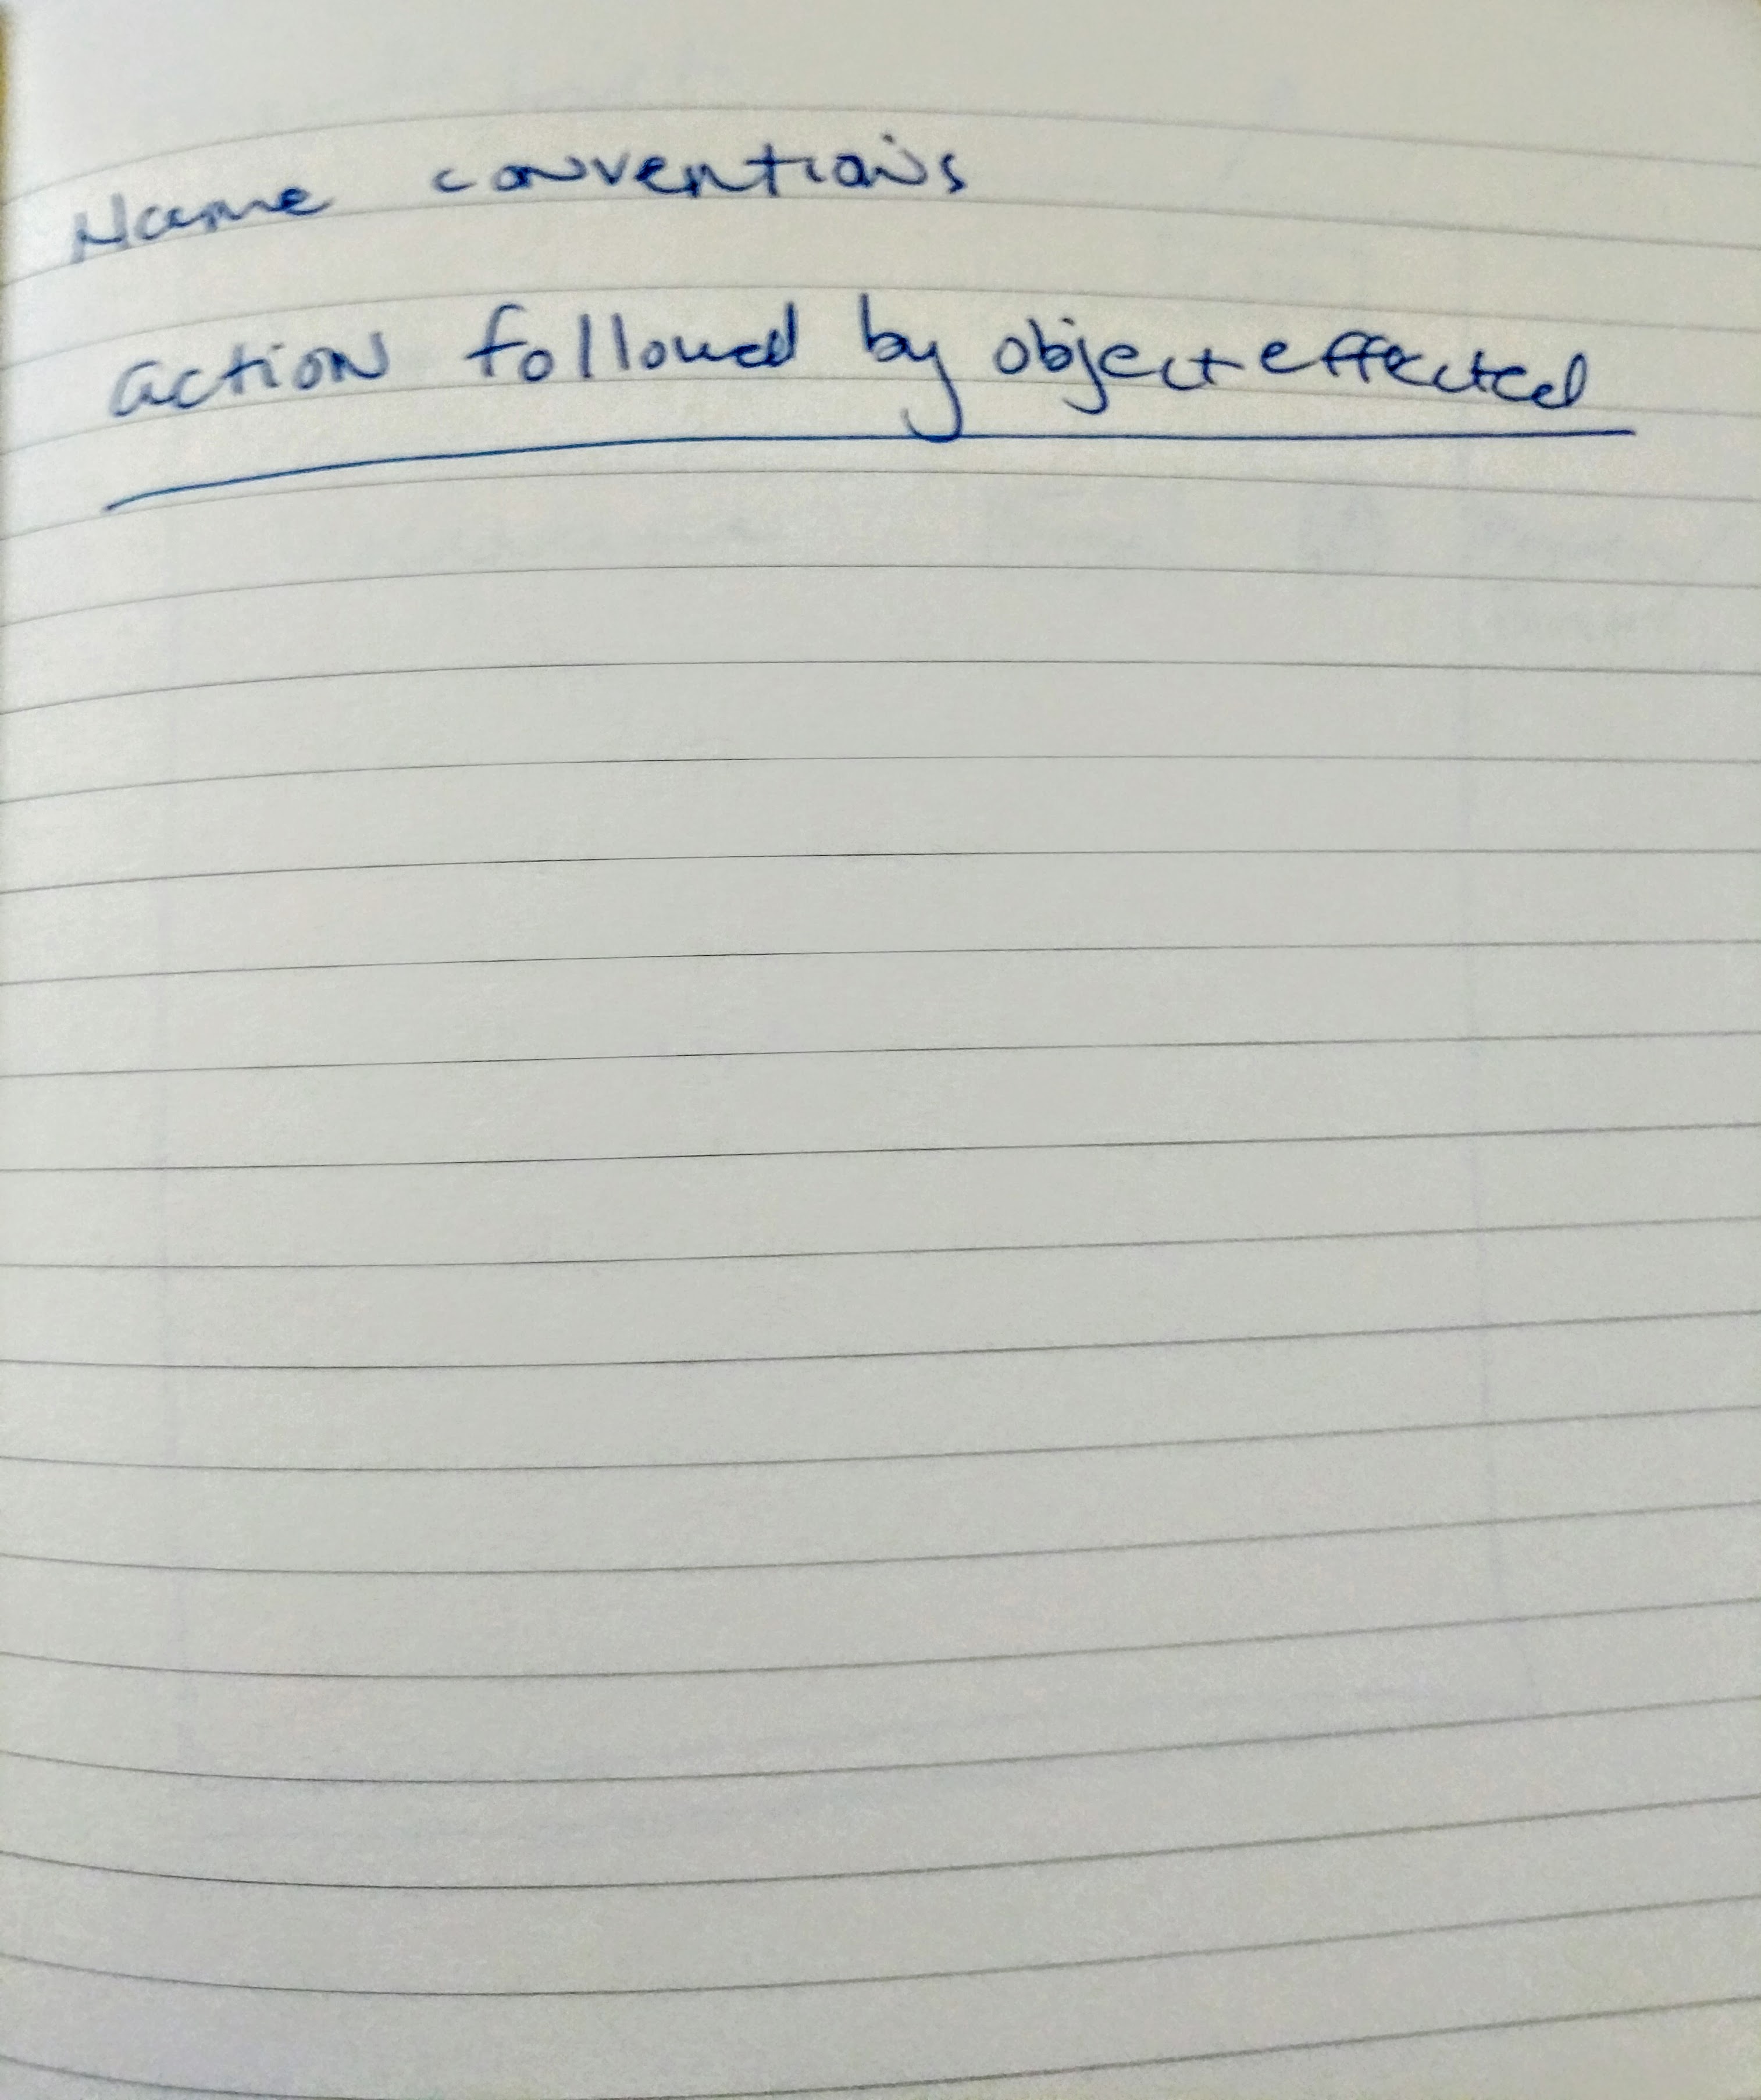 Name conventions
action followed by object effected